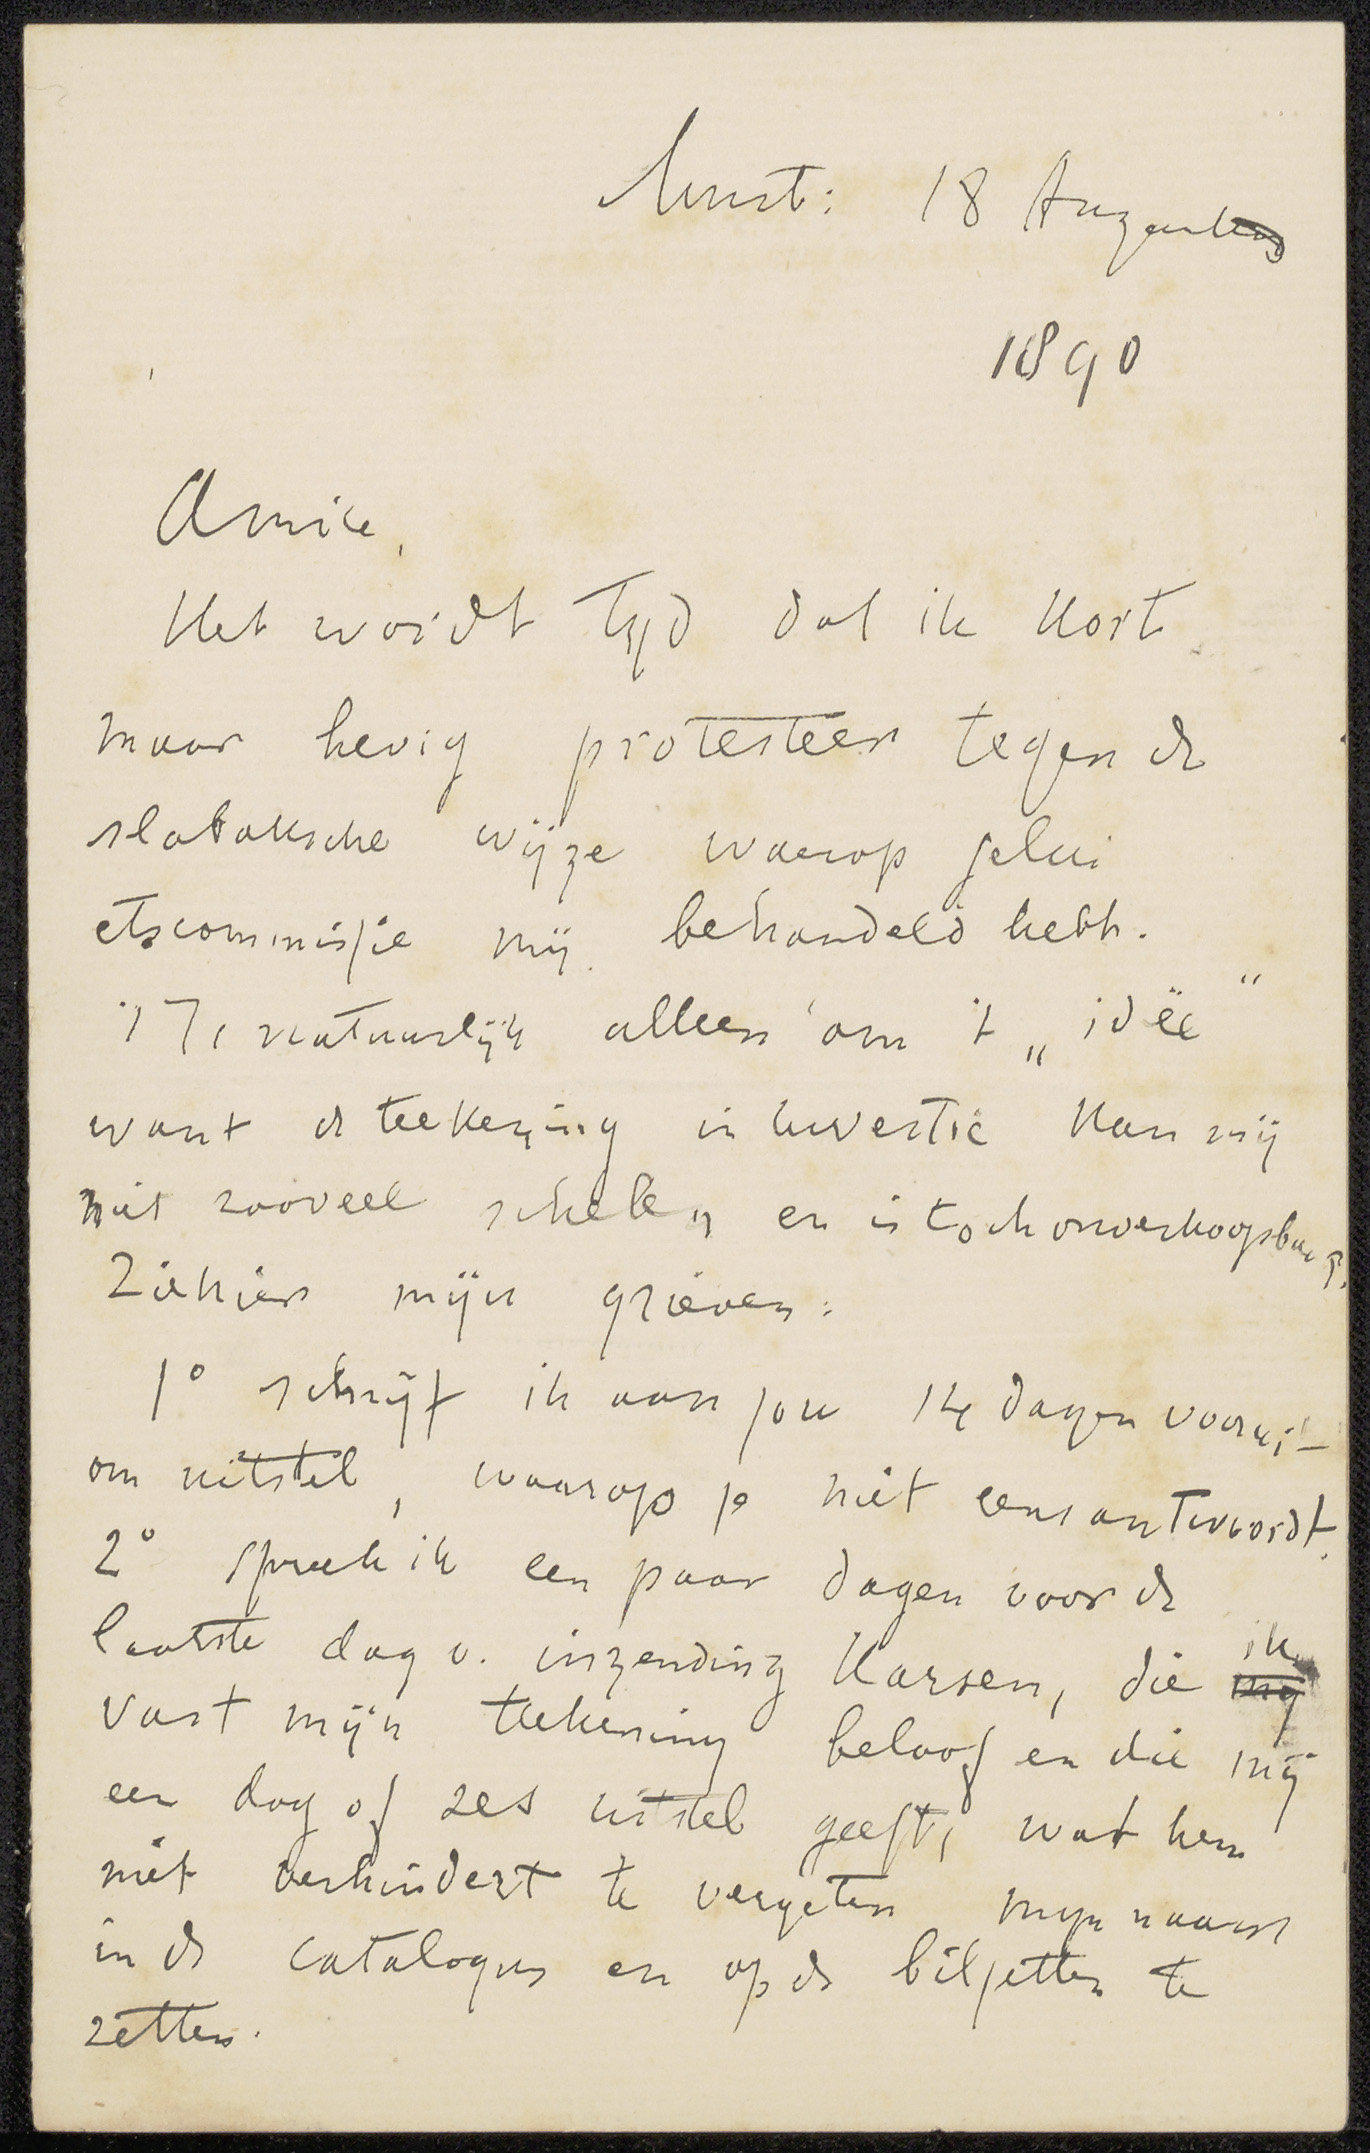 Amst: 18 Augustus
1890
Amice,
Het wordt tijd dat ik kort
maar hevig protesteer tegen de
slabaksche wijze waarop jelui
etscommissie mij behandeld hebt.
't Is natuurlijk alleen om 't „idëe"
want de teekening in kwestie kan mij
niet zooveel schelen en is toch onverkoopbaar.
Ziehier mijn grieven:
1° schrijf ik aan jou 14 dagen vooruit
om uitstel, waarop je niet eens antwoordt.
2° spreek ik een paar dagen voor de
laatste dag v. inzending Karsen, die ik
vast mijn teekening beloof en die mij
een dag of zes uitstel geeft, wat hem
niet verhindert te vergeten mijn naam
in de catalogus en op de biljetten te
zetten.